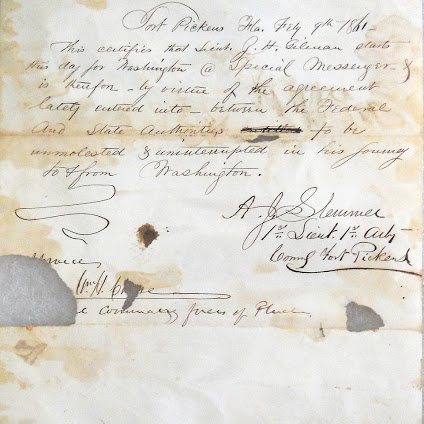 Fort Pickens Fla. Feby 9th 1861-
This certifies that Lieut. J. H. Gilman starts
this day for Washington @ Special Messenger - &
is therefor - by virtue of the agreement
lately entered into - between the Federal
And State Authorities to be
unmolested & uninterrupted in his journey
to & from Washington.
A. J. Slemmer
1st Lieut. 1st Arty
Comg Fort Pickens
Wm H. Chase